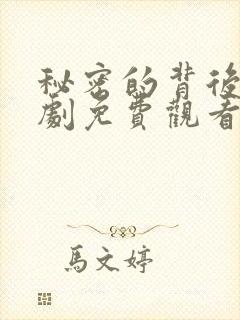 秘密的背後
劇免費觀看
馬文婷